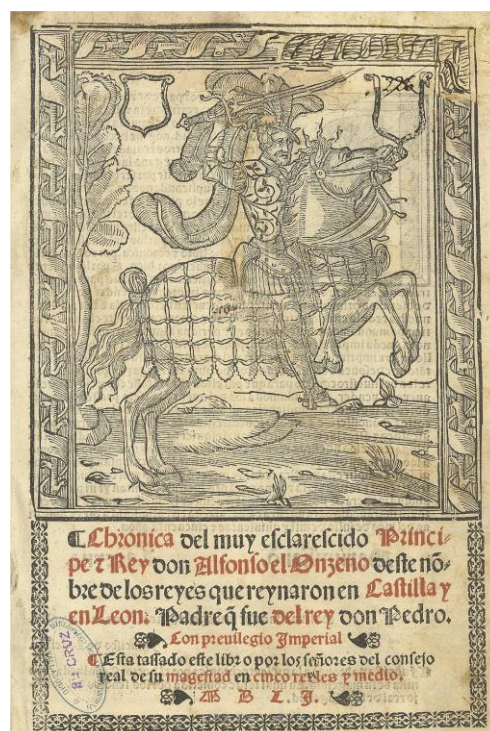 226
¶Chronica del muy esclarescido Princi-
pe ⁊ Rey don Alfonso el Onzeno deste nõ-
bre de los reyes que reynaron en Castilla y
en Leon. Padre q̃ fue del rey don Pedro.
Con preuilegio Imperial
¶Esta tassado este libro por los señores del consejo
real de su magestad en cinco reales y medio.
M D L I.